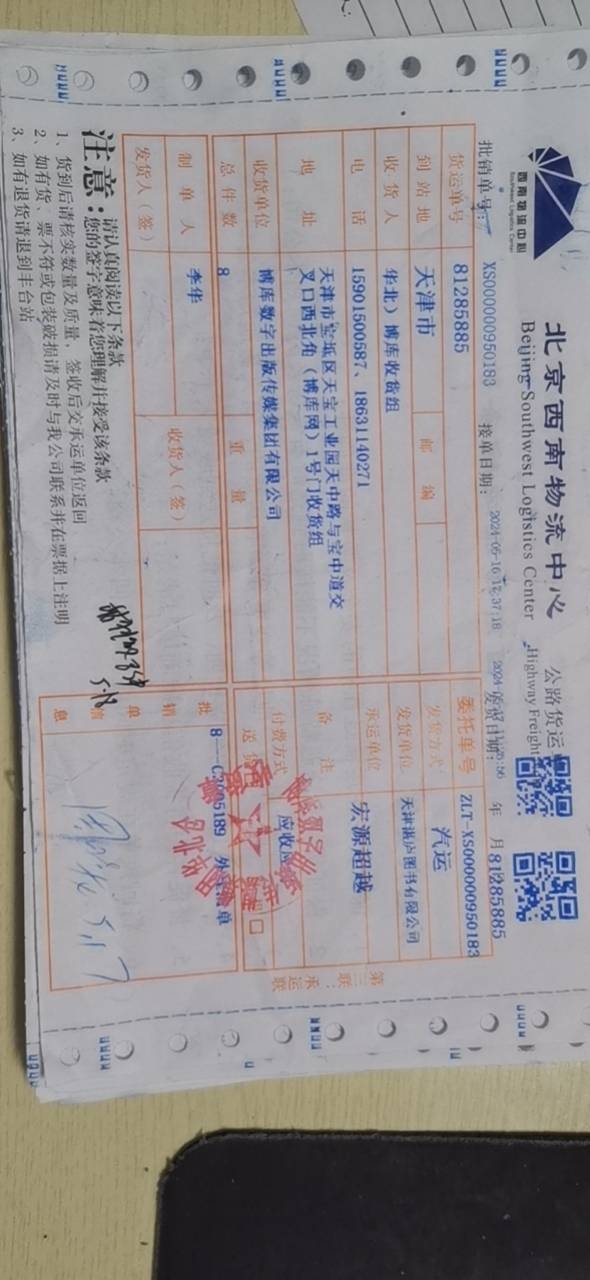 西南物流中心
Southwest Logistics Center
北京西南物流中心
Beijing Southwest Logistics Center
公路货运
Highway Freight
批销单号: XS000000950183
接单日期: 2024-05-16 17:37:18
发货日期:
年 月
81285885
货运单号 81285885
委托单号 ZLT-XS000000950183
到站地 天津市
邮编
发货方式 汽运
收货人 华北）博库收货组
发货单位 天津湛庐图书有限公司
电话 15901500587、18631140271
承运单位 宏源超越
地址 天津市宝坻区天宝工业园天中路与宝中道交
叉口西北角（博库网）1号门收货组
备注
收货单位 博库数字出版传媒集团有限公司
付费方式 应收
总件数 8
重量
送货
制单人 李华
批销单信息
发货人（签）
收货人（签）
第三联：承运联
注意：
请认真阅读以下条款
您的签字意味着您理解并接受该条款
1、货到后请核实数量及质量，签收后交承运单位返回
2、如有货、票不符或包装破损请及时与我公司联系并在票据上注明
3、如有退货请退到丰台站
5-18